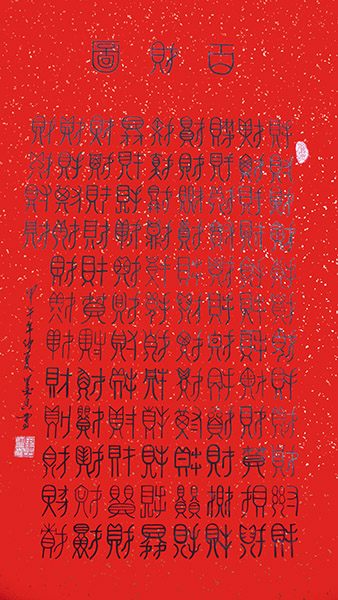 百財圖
財財財財財財財財財財財財
財財財財財財財財財財財財
財財財財財財財財財財財財
財財財財財財財財財財財財
財財財財財財財財財財財財
財財財財財財財財財財財財
財財財財財財財財財財財財
財財財財財財財財財財財財
財財財財
甲午年仲夏書